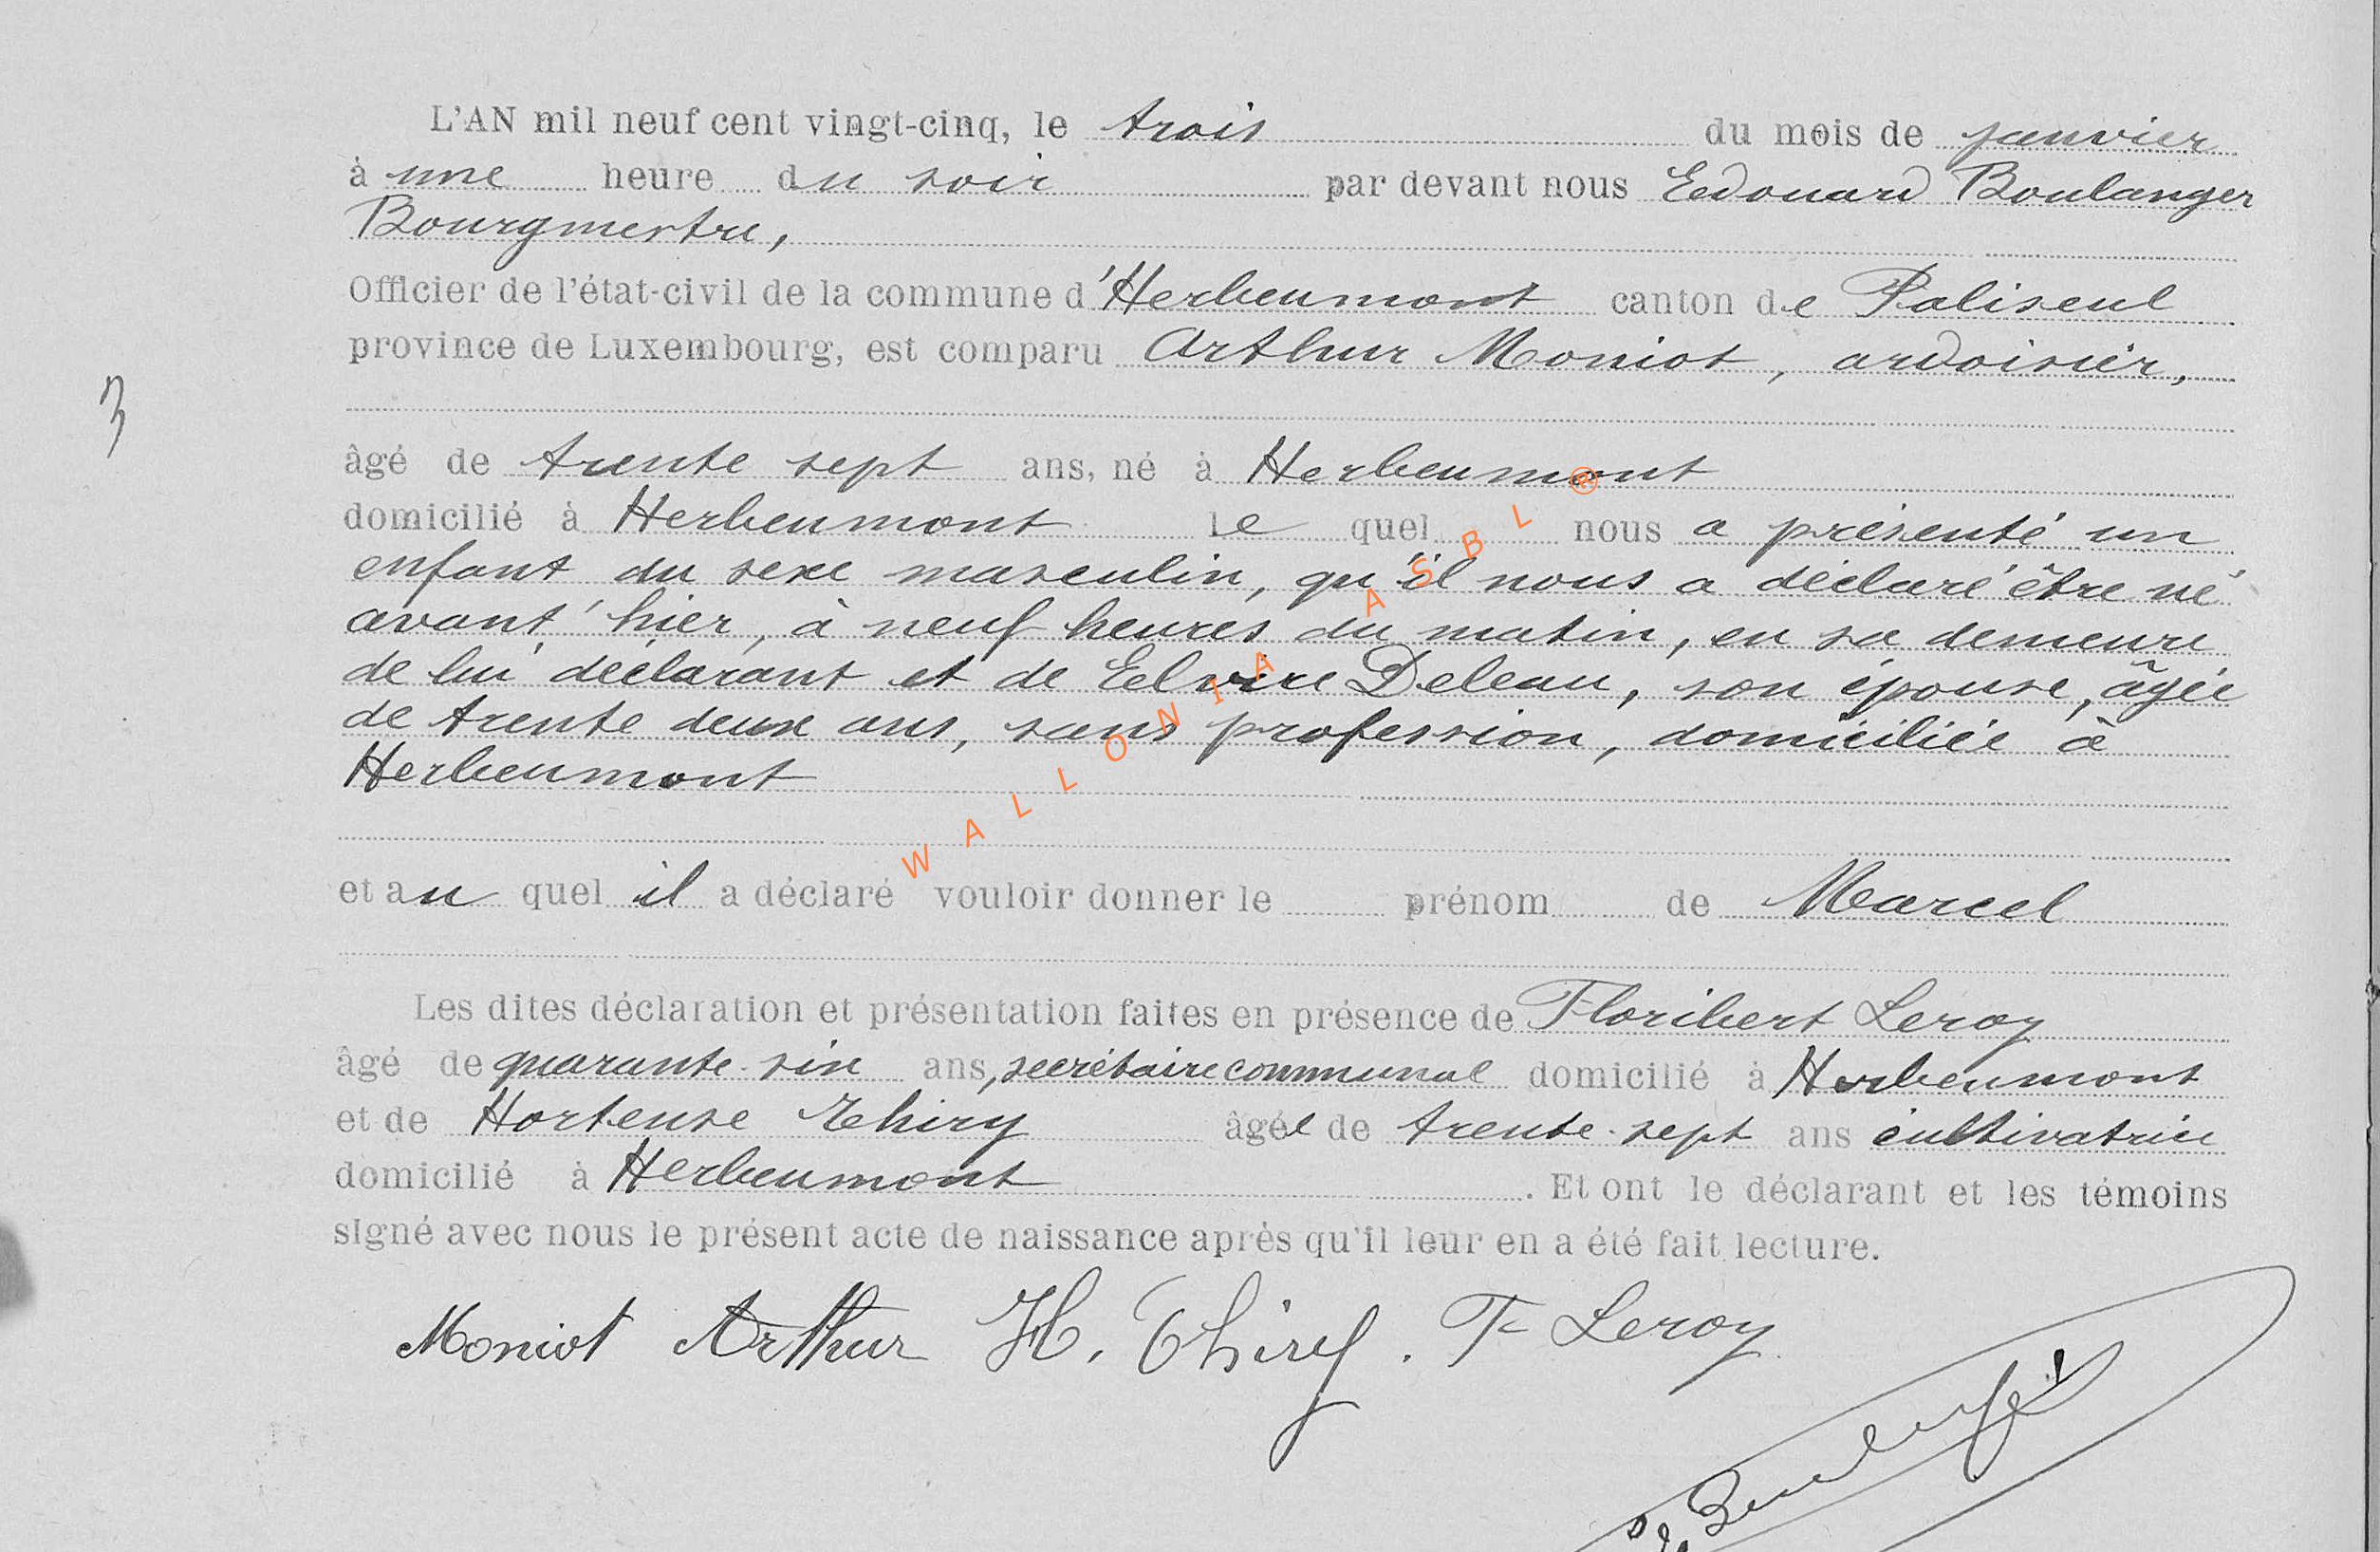 L'AN mil neuf cent vingt-cinq, le trois du mois de janvier
à une heure du soir par devant nous Edouard Boulanger
Bourgmestre,
Officier de l'état-civil de la commune d'Herbeumont canton de Paliseul
province de Luxembourg, est comparu Arthur Moniot, ardoisier,
3
âgé de trente sept ans, né à Herbeumont
domicilié à Herbeumont le quel nous a présenté un
enfant du sexe masculin, qu'il nous a déclaré être né
avant'hier, à neuf heures du matin, en sa demeure
de lui déclarant et de Elvire Deleau, son épouse, âgée
de trente deux ans, sans profession, domiciliée à
Herbeumont
WALLONIA ASBL ®
et au quel il a déclaré vouloir donner le prénom de Marcel
Les dites déclaration et présentation faites en présence de Floribert Leroy
âgé de quarante-six ans, secrétaire communal domicilié à Herbeumont
et de Hortense Thiry âgée de trente-sept ans cultivatrice
domicilié à Herbeumont . Et ont le déclarant et les témoins
signé avec nous le présent acte de naissance après qu'il leur en a été fait lecture.
Moniot Arthur H. Thiry. F Leroy